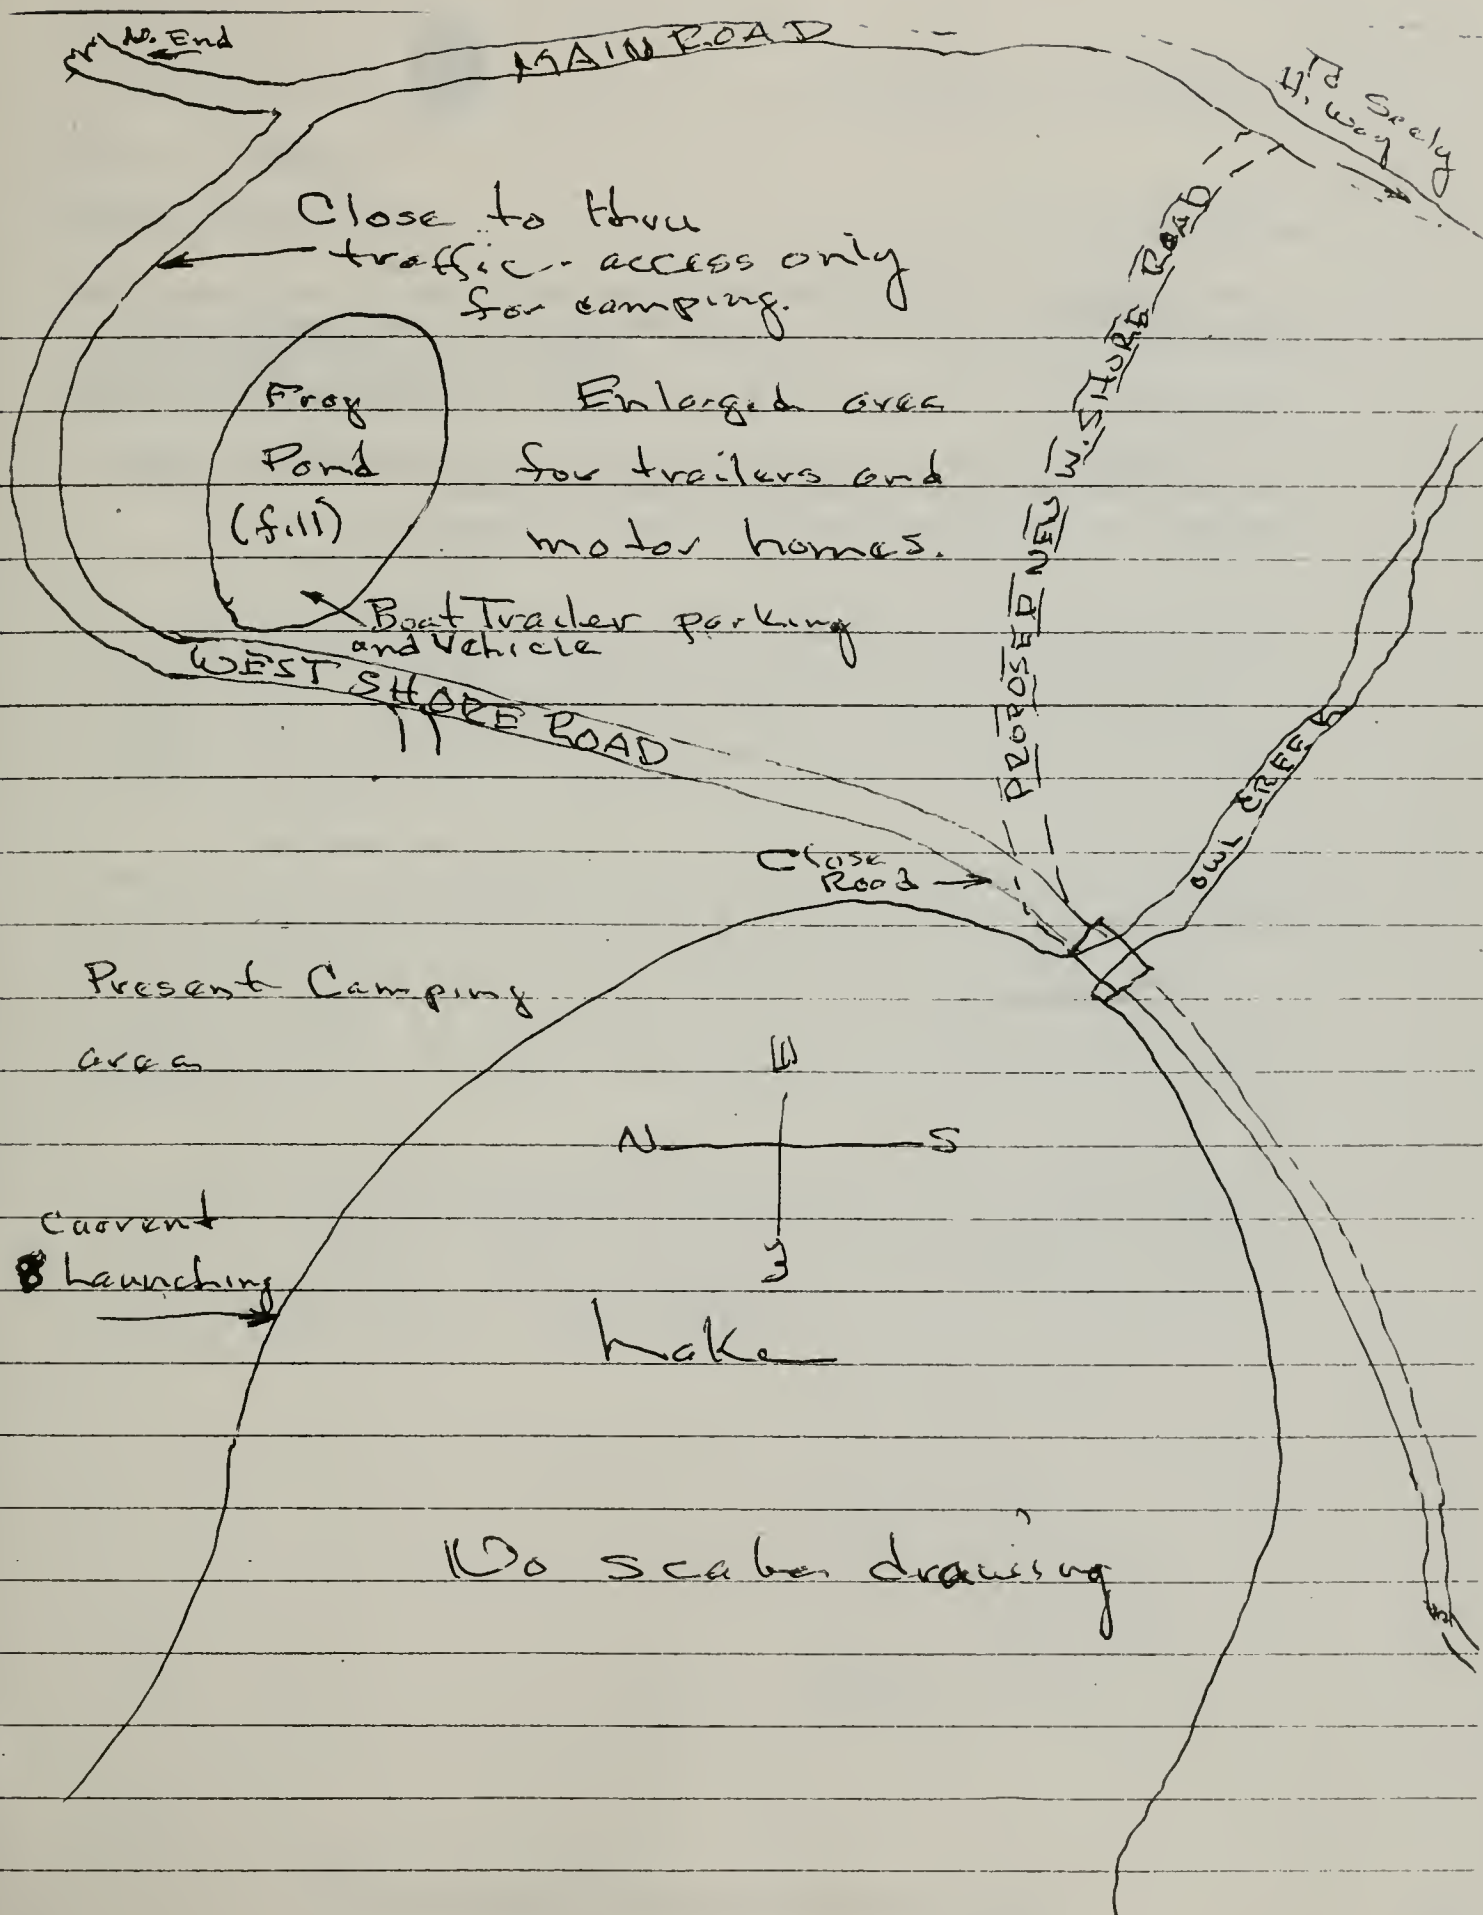 N. End
MAIN ROAD
To Seely
H. Way
Close to thru
traffic - access only
for camping.
Frog
Pond
(fill)
Enlarged area
for trailers and
motor homes.
PROPOSED NEW W. SHORE ROAD
Boat Trailer parking
and Vehicle
WEST SHORE ROAD
OWL CREEK
Close
Road
Present Camping
area
W
N
S
E
Current
Launching
Lake
No scale drawing